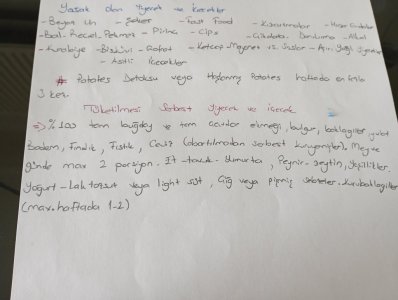 Yasak olan Yiyecek ve İçecekler
- Beyaz Un - Şeker - Fast Food - Kızartmalar - Hazır Gıdalar
- Bal - Reçel - Pekmez - Pirinç - Cips - Çikolata - Dondurma - Alkol
- Kuruboya - Bisküvi - Gofret - Ketçap Mayonez vs. Soslar - Aşırı Yağlı Yiyecekler
- Asitli İçecekler
* Patates Detoksu veya Haşlanmış Patates haftada en fazla
3 kez.
Tüketilmesi Serbest Yiyecek ve içecek
=> %100 tam buğday ve tam çavdar ekmeği, bulgur, baklagiller, yulaf
Badem, Fındık, Fıstık, Ceviz (abartılmadan serbest kuruyemişler). Meyve
günde max 2 porsiyon. Et - tavuk - yumurta, Peynir - zeytin, yeşillikler.
Yoğurt - Laktozsuz veya light süt, Çiğ veya pişmiş sebzeler. Kurubaklagiller
(max. haftada 1-2)